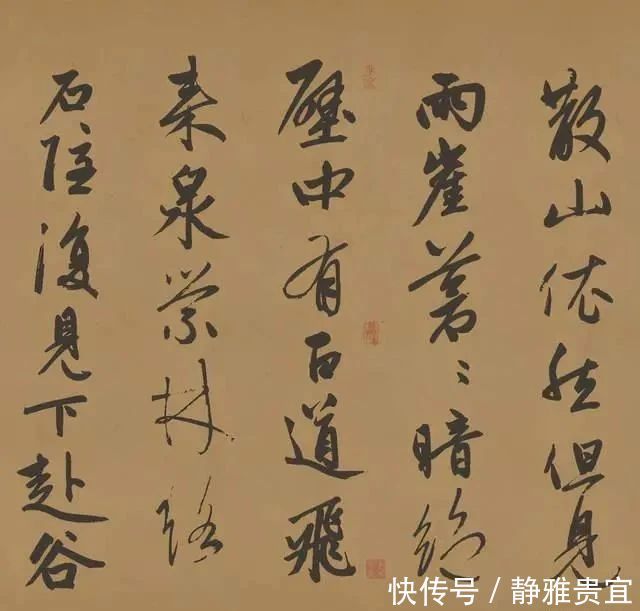 散山依然但見
兩崖蒼〻暗絕
壁中有百道飛
來泉縈林絡
石隱復見下赴谷
快传号 / 静雅贵宜